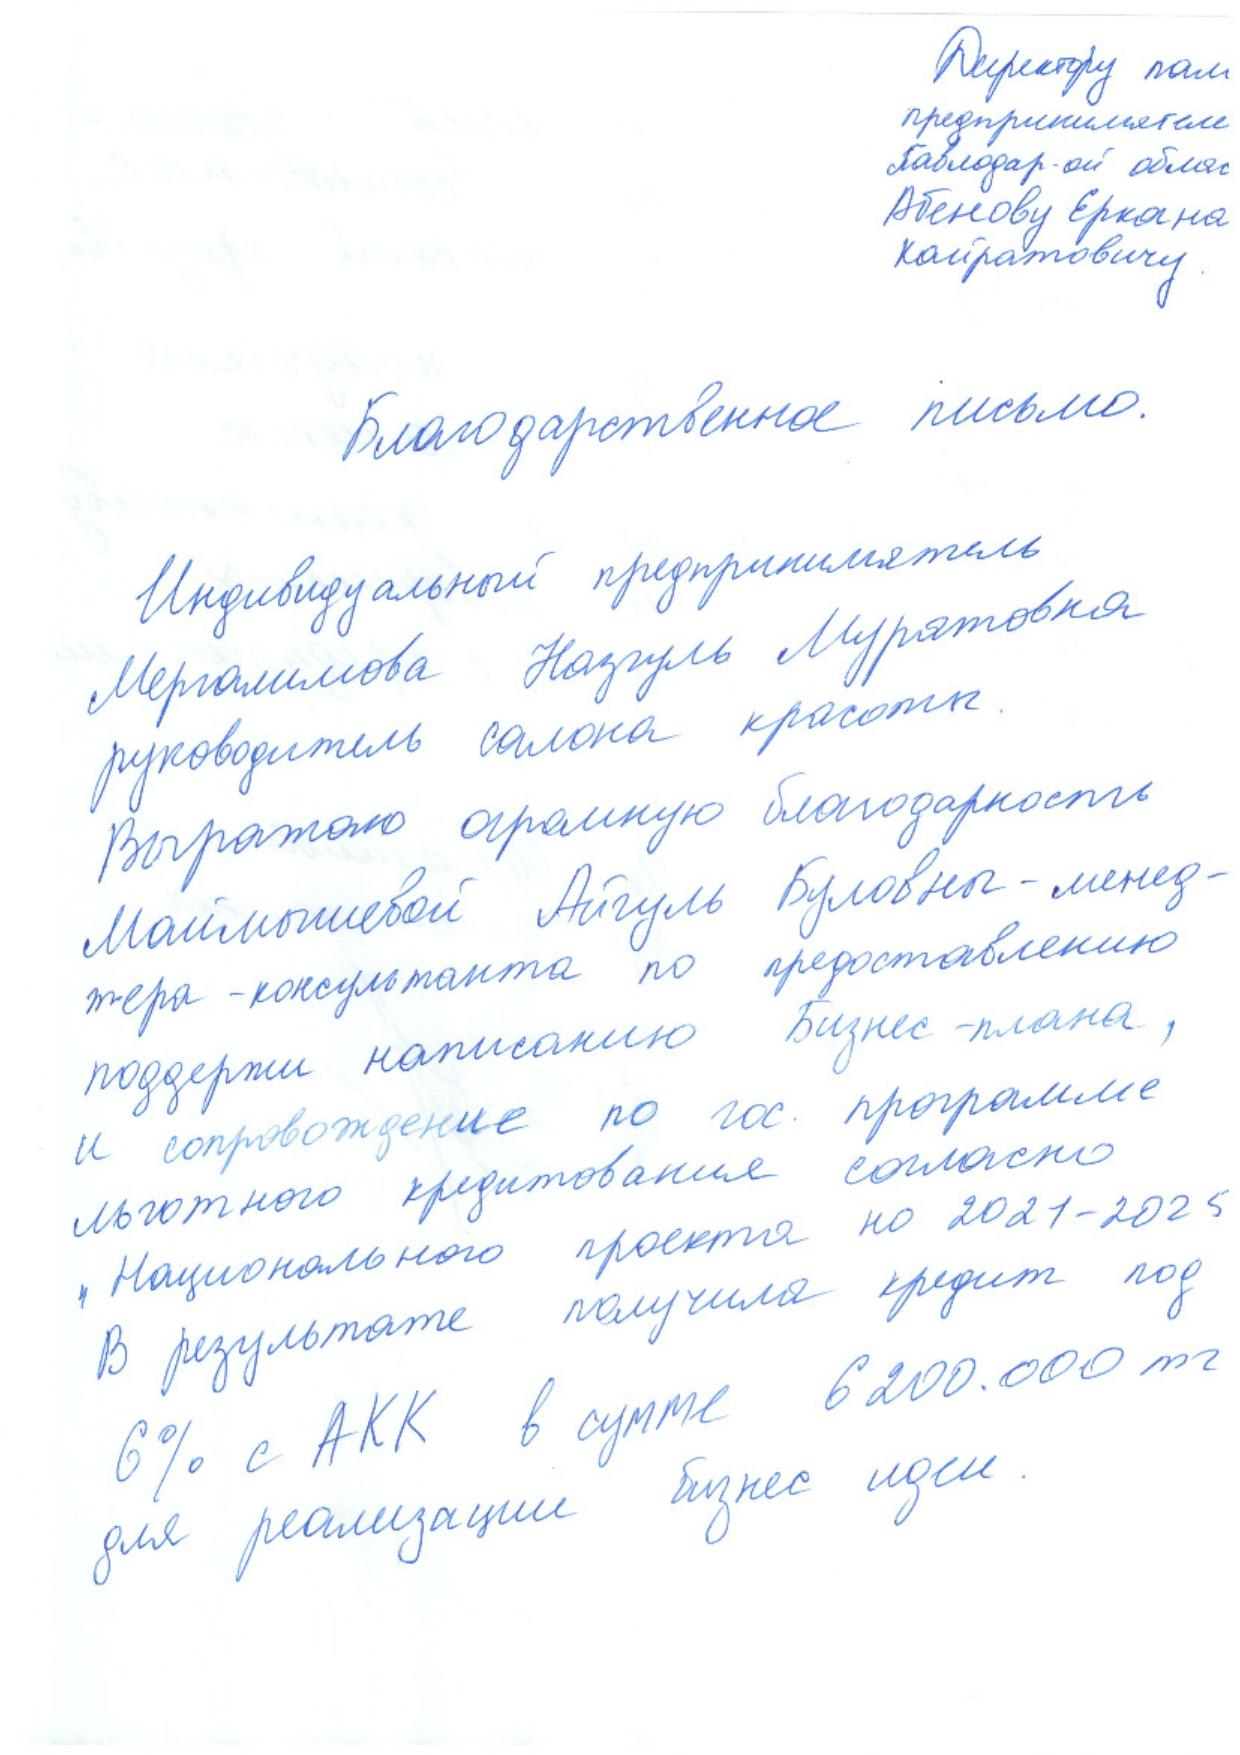 Директору пал
предпринимателе
Павлодар-ой облас
Абенову Еркана
Кайратовичу.
Благодарственное письмо.
Индивидуальный предприниматель
Мергалимова Назгуль Муратовна
руководитель салона красоты.
Выражаю огромную благодарность
Маймышевой Айгуль Буловны - менед-
жера - консультанта по предоставлению
поддержи написанию Бизнес - плана,
и сопровождение по гос. программе
льготного кредитования согласно
„Национального проекта на 2021-2025
В результате получила кредит под
6% с АКК в сумме 6200.000 тг
для реализации бизнес идеи.